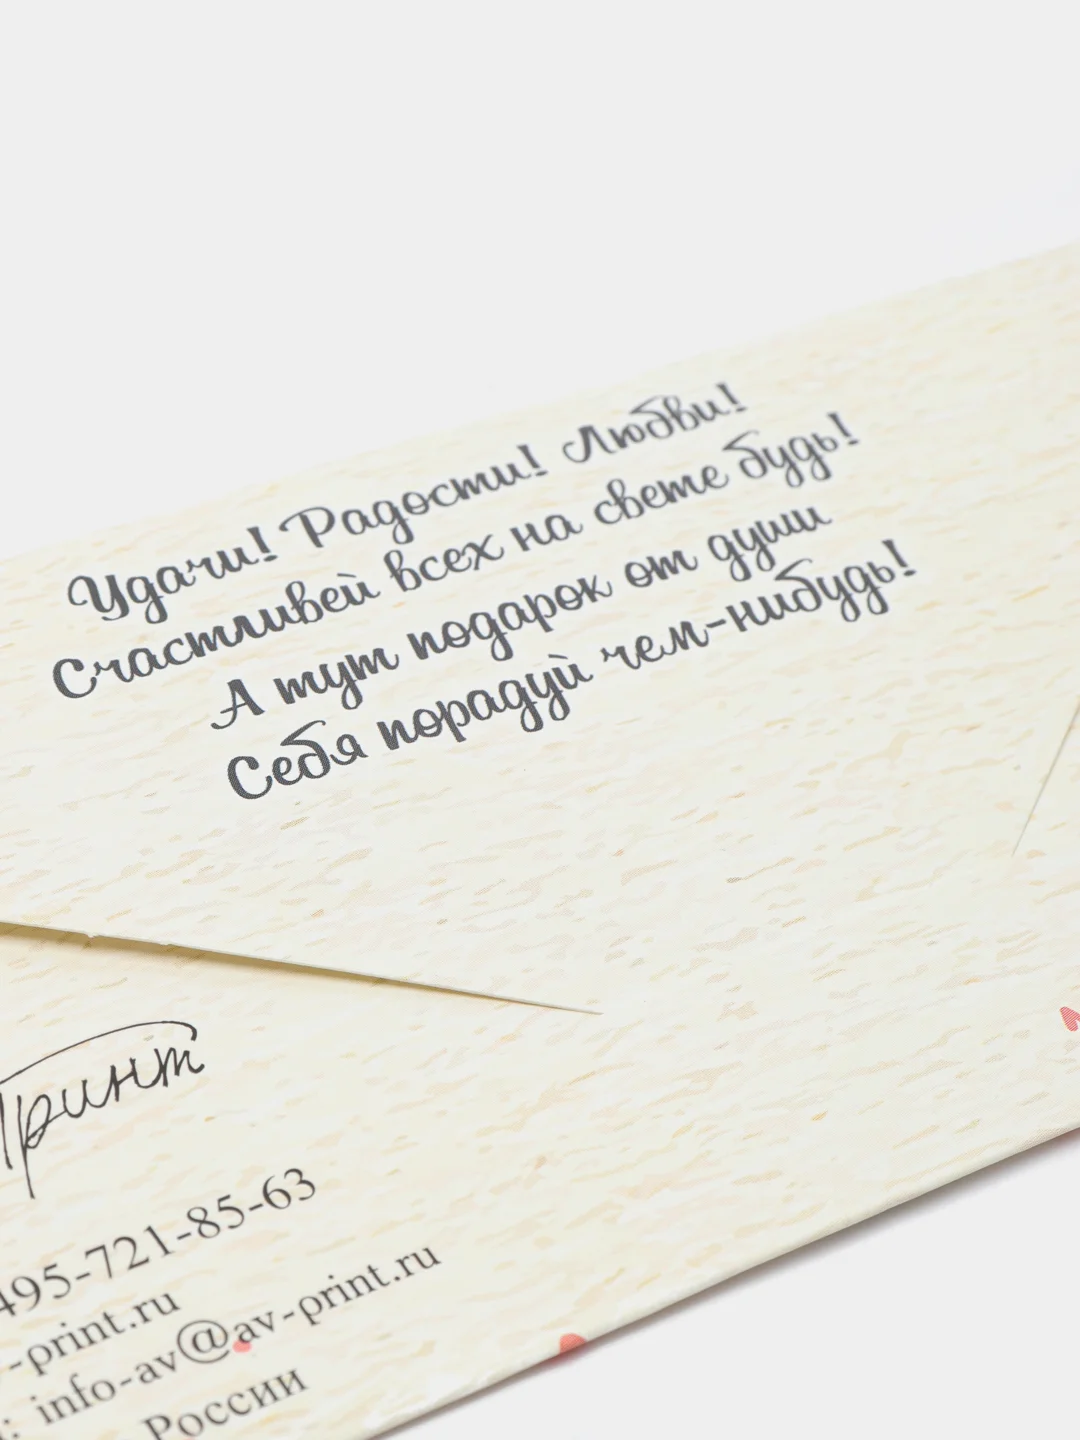 Удачи! Радости! Любви!
Счастливей всех на свете будь!
А тут подарок от души
Себя порадуй чем-нибудь!
Принт
495-721-85-63
-print.ru
: info-av@av-print.ru
России